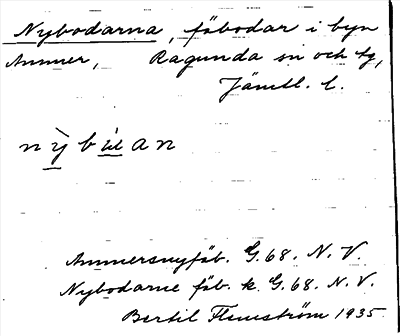 Nybodarna, fäbodar i byn
Ammer, Ragunda sn och tg,
Jämtl. l.
nỳbu̇an
Ammersnyfäb. G.68. N.V.
Nybodarne fäb. k. G.68. N.V.
Bertil Flemström 1935.